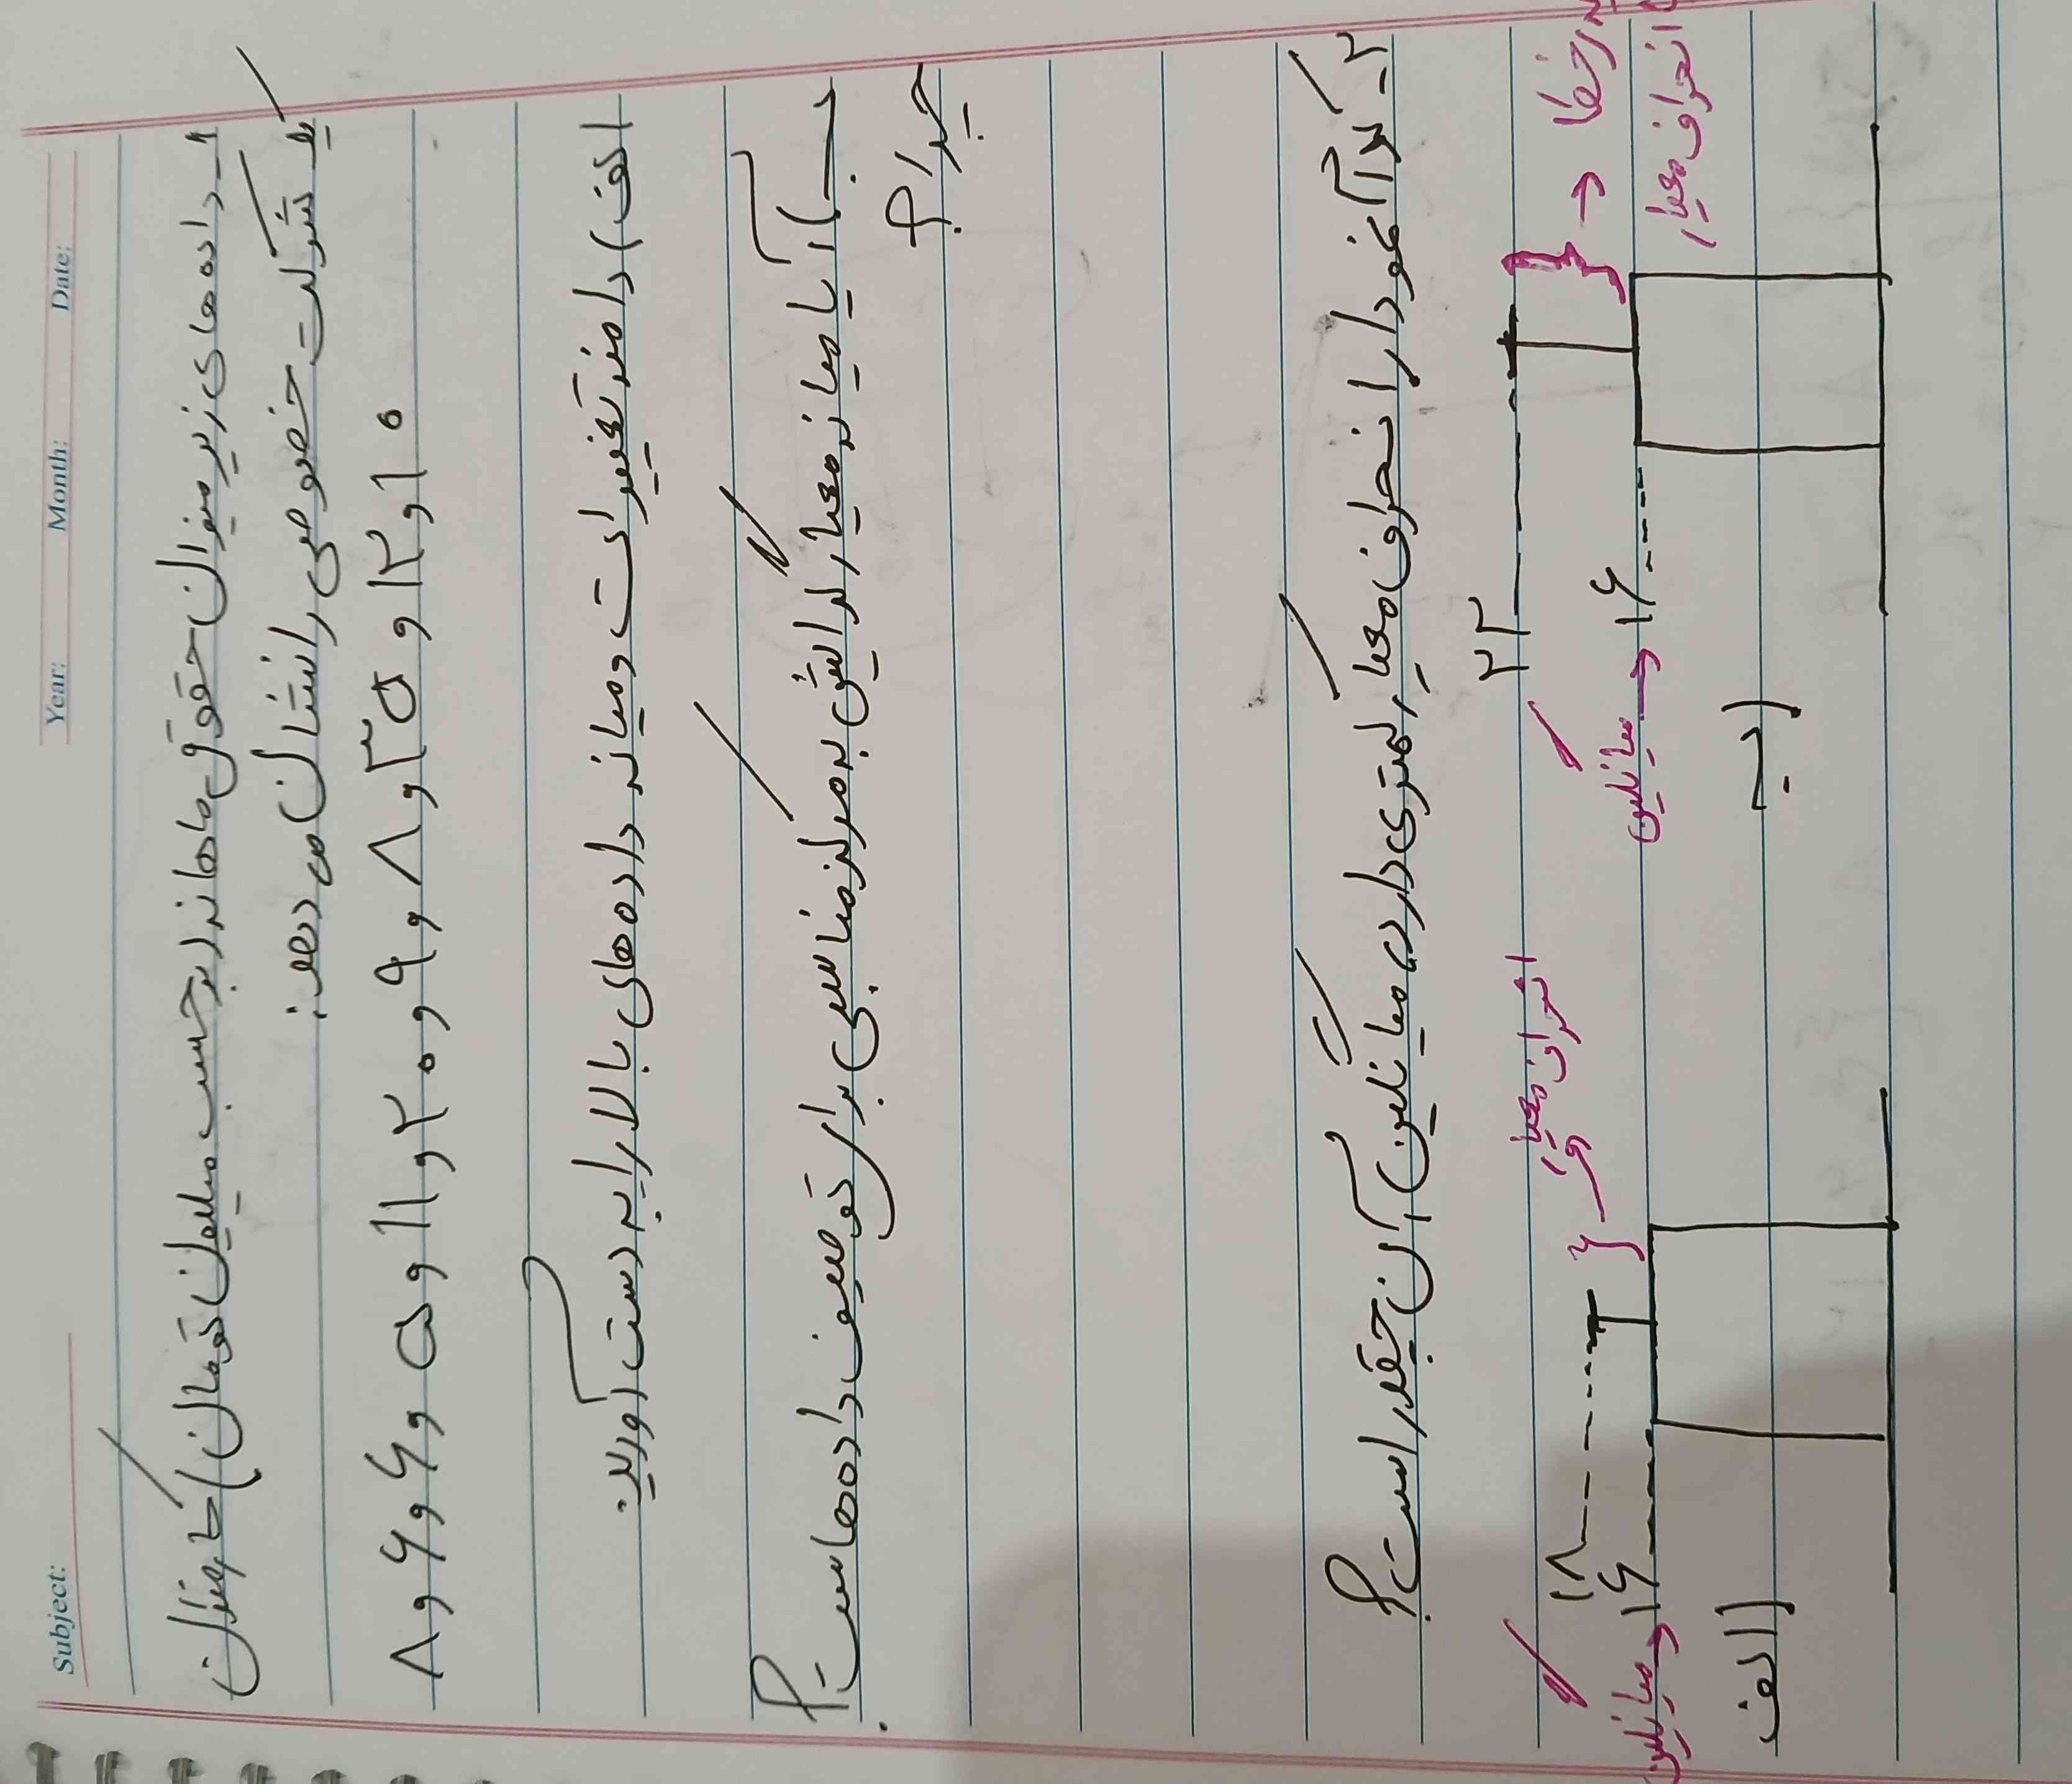 Subject:
Year: Month: Date:
۱ـ داده های زیر میزان حقوق ماهانه (برحسب میلیون تومان) کارمندان
یک شرکت خصوصی را نشان می دهد:
۸ و ۶ و ۶ و ۵ و ۱۱ و ۲۰ و ۹ و ۸ و ۳۵ و ۱۲ و ۱۰
الف) دامنه تغییرات و میانه داده های بالا را به دست آورید.
ب) آیا میانه معیار گرایش به مرکز مناسبی برای توصیف داده هاست؟
چرا؟
۲ـ کدام نمودار انحراف معیار کمتری دارد؟ میانگین آن چقدر است؟
انحراف معیار
۱۸
۱۶ → میانگین
الف)
۲۲
۱۶ → میانگین
ب)
انحراف معیار